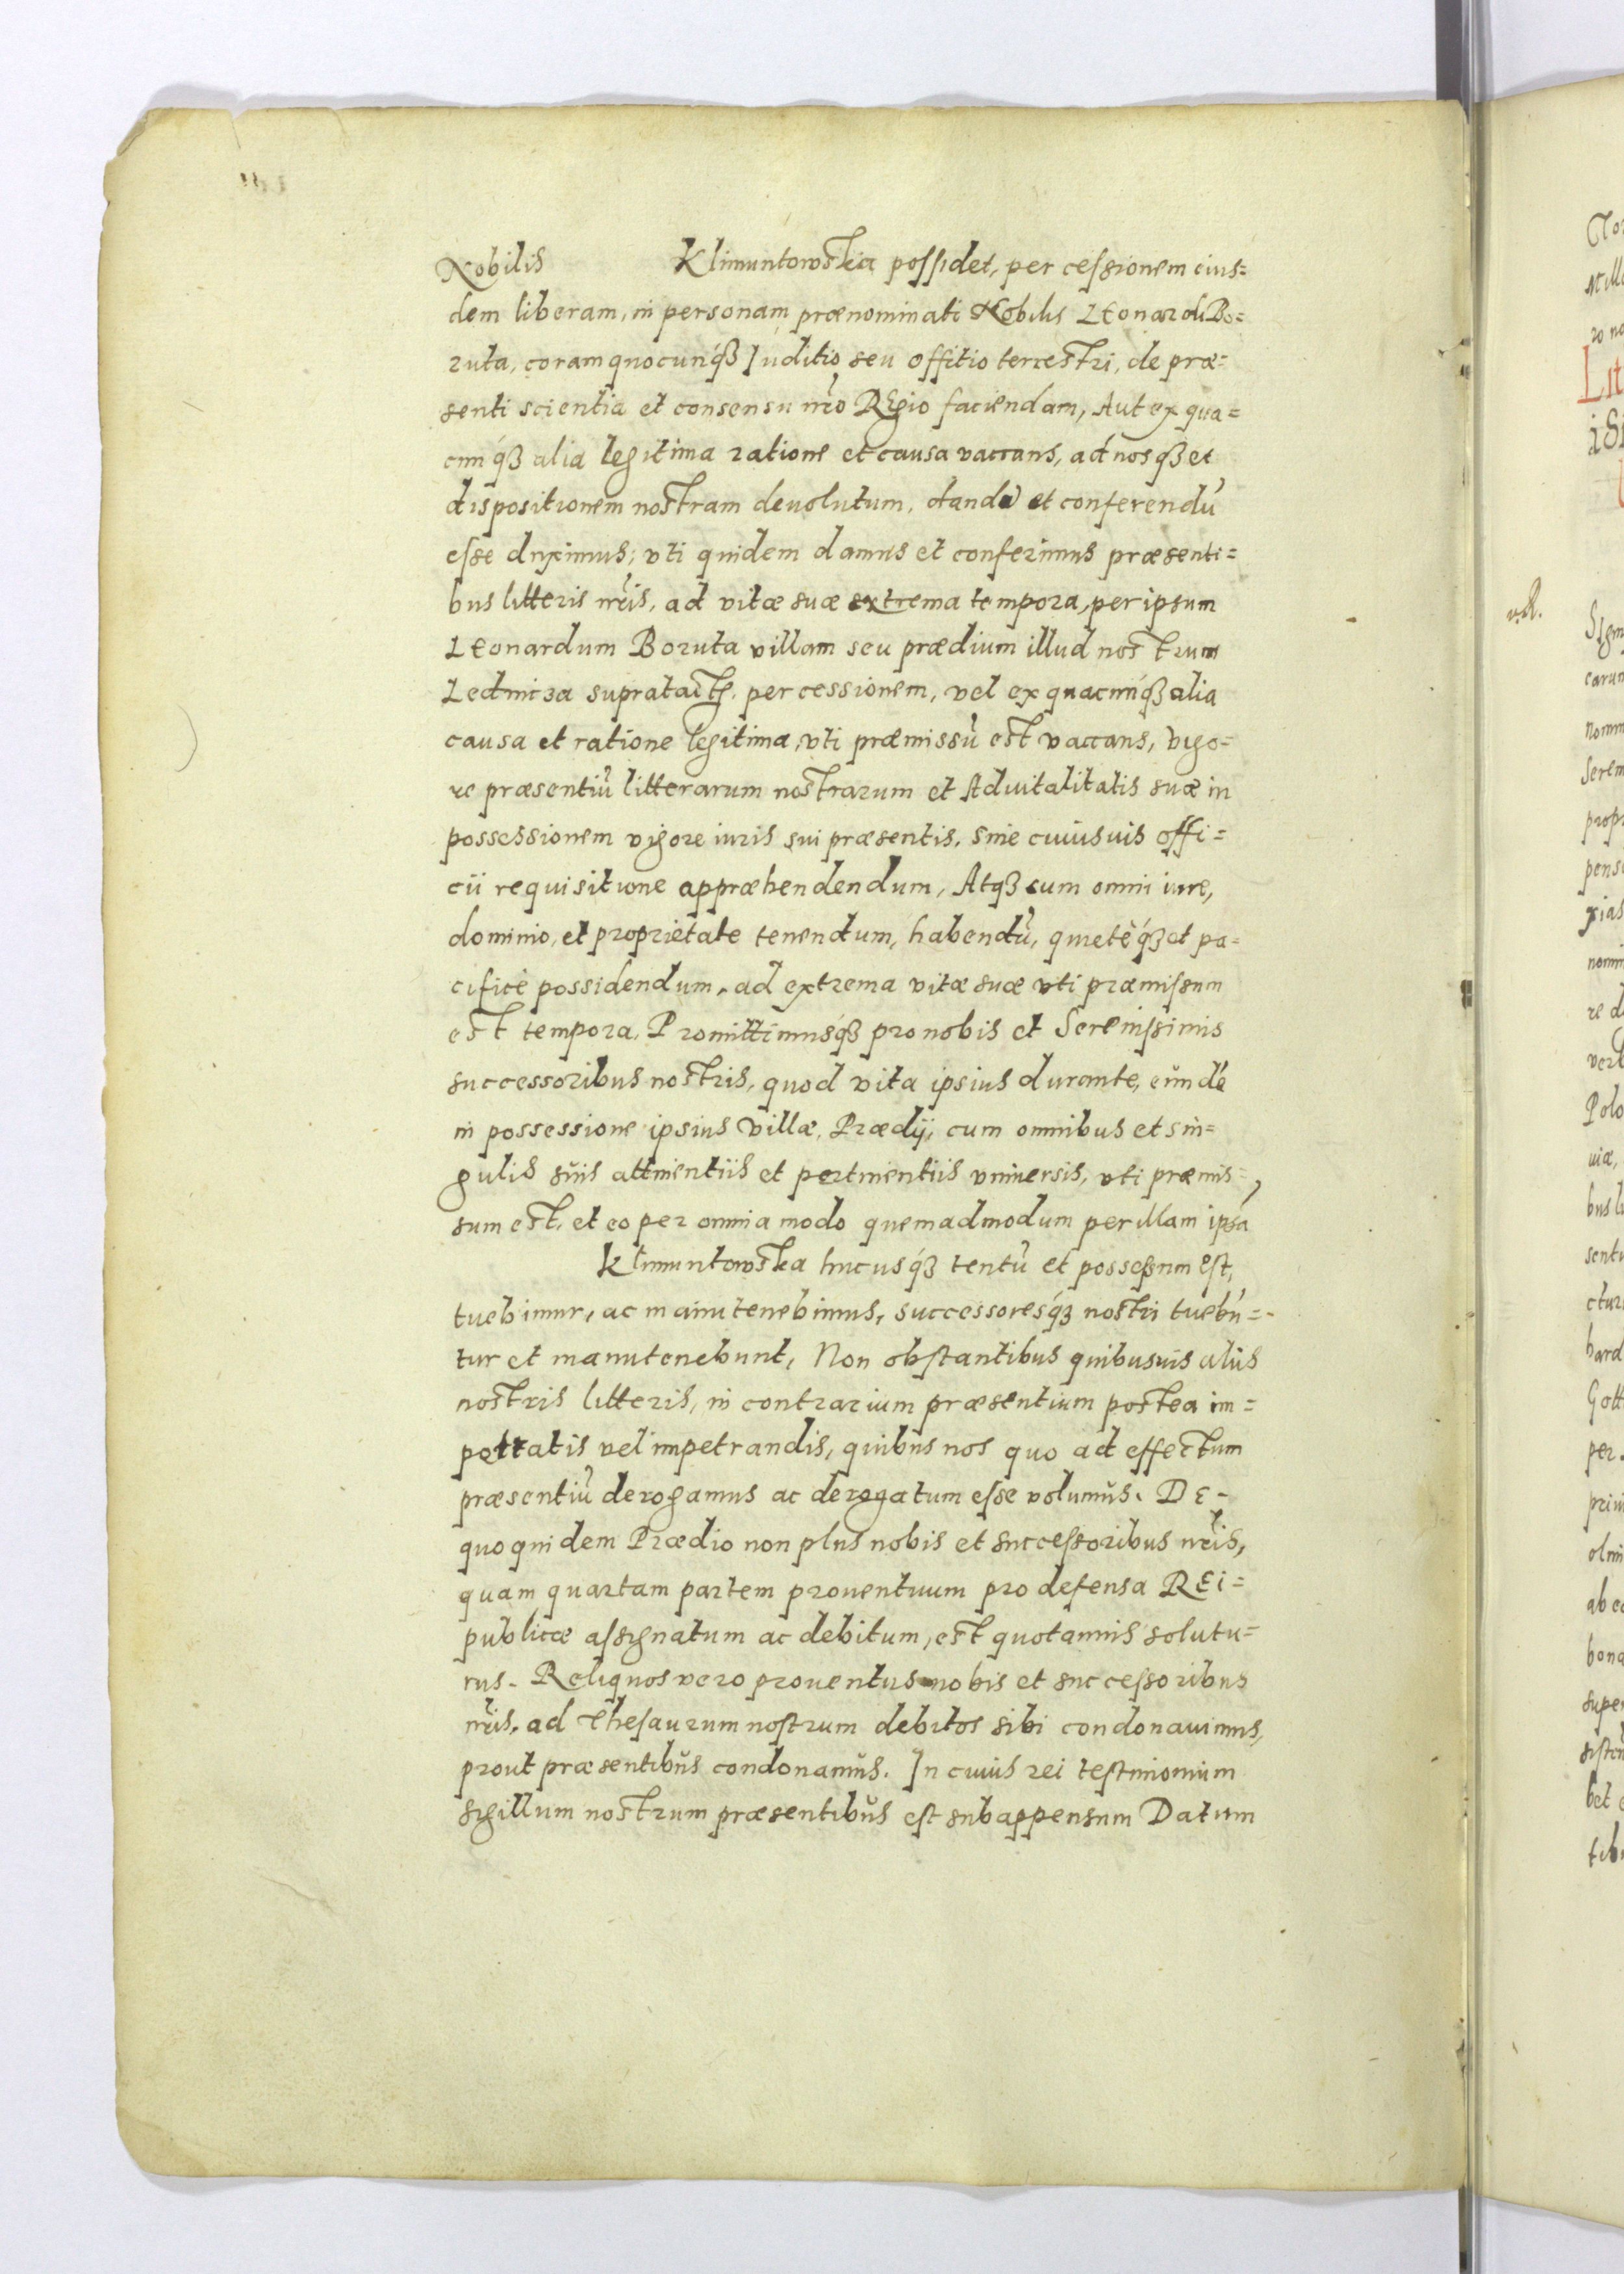 Nobilis Klimuntowska possidet, per cessionem eius=
dem liberam, in personam prænominati Nobilis Leonardi Bo=
ruta, coram quocunq́ꝫ Juditio seu offitio terrestri, de præ=
senti scientia et consensu nr̃o Regio faciendam, Aut ex qua=
cunq́ꝫ alia legitima ratione et causa vaccans, ad nosqꝫ et
dispositionem nostram deuolutum, dandũ et conferendũ
esse duximus; vti quidem damus et conferimus præsenti=
bus litteris nr̃is, ad vitæ suæ extrema tempora, per ipsum
Leonardum Boruta villam seu prædium illud nostrum
Lednicza supratacte, per cessionem, vel ex quacunq́ꝫ alia
causa et ratione legitima, vti præmissũ est vaccans, vigo=
re præsentiũ litterarum nostrarum et Aduitalitatis suæ in
possessionem vigore iuris sui præsentis, sine cuiusuis offi=
cii requisitione appræhendendum, Atqꝫ cum omni iure,
dominio, et proprietate tenendum, habendũ, quietèq́ꝫ et pa=
cificè possidendum, ad extrema vitæ suæ vti præmissum
est tempora. Promittimusq́ꝫ pro nobis et Serenissimis
successoribus nostris, quod vita ipsius durante, eũndẽ
in possessione ipsius Villæ, Prædij, cum omnibus et sin=
gulis sŭis attinentiis et pertinentiis vniuersis, vti præmis=
sum est, et eo per omnia modo quemadmodum per illam ipsa
Klimuntowska hucusq́ꝫ tentũ et possessum est,
tuebimur, ac manutenebimus, successoresq́ꝫ nostri tuebũ=
tur et manutenebunt, Non obstantibus quibusuis aliis
nostris litteris, in contrarium præsentium postea im=
pettratis vel impetrandis, quibus nos quo ad effectum
præsentiũ derogamus ac derogatum esse volumŭs. De=
quo quidem Prædio non plus nobis et successoribus nr̃is,
quam quartam partem prouentuum pro defensa Rei=
publicæ assignatum ac debitum, est quotannis solutu=
rus. Reliquos vero prouentus nobis et successoribus
nr̃is, ad Thesaurum nostrum debitos sibi condonauimus,
prout præsentibŭs condonamŭs. In cuius rei testimonium
sigillum nostrum præsentibŭs est subappensum Datum